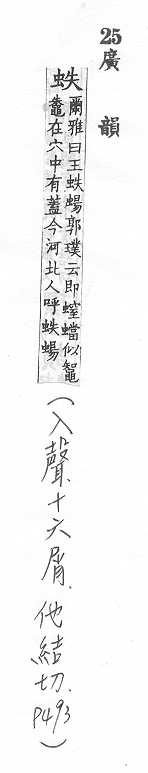 25廣韻
蛈爾雅曰王蛈蝪郭璞云即螲蟷似鼅
鼄在穴中有蓋今河北人呼蛈蝪
(入聲.十六屑.他結切.P493)